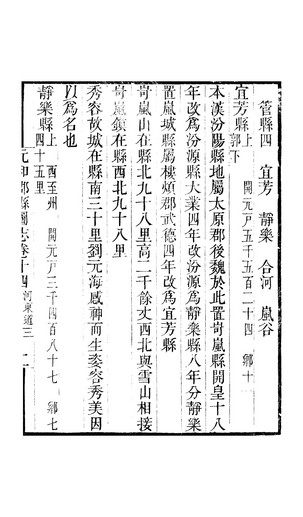 管縣四　宜芳　靜樂　合河　嵐谷
宜芳縣上郭下　開元戶五千五百二十四　鄉十
本漢汾陽縣地屬太原郡後魏於此置岢嵐縣開皇十八
年改為汾源縣大業四年改汾源為靜樂縣八年分靜樂
置嵐城縣屬樓煩郡武德四年改為宜芳縣
岢嵐山在縣西北九十八里高二千餘丈西北與雪山相接
岢嵐鎮在縣西北九十八里
秀容故城在縣南三十里劉元海感神而生姿容秀美因
以為名也
靜樂縣上　西至州四十五里　開元戶三千四百八十七　鄉七
元和郡縣圖志卷十四河東道三　二